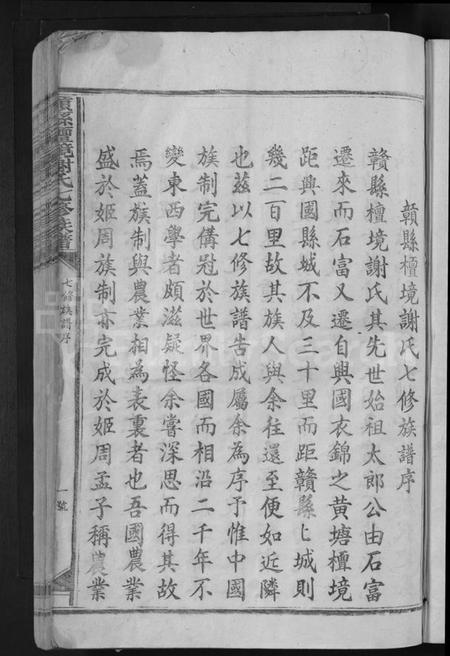 贛縣檀境謝氏七修族譜序
贛縣檀境謝氏其先世始祖太郎公由石富
遷來而石富又遷自興國衣錦之黃塘檀境
距興國縣城不及三十里而距贛縣上城則
幾二百里故其族人與余往還至便如近隣
也茲以七修族譜告成屬余為序予惟中國
族制完備冠於世界各國而相沿二千年不
變東西學者頗滋疑怪余嘗深思而得其故
焉蓋族制與農業相為表裏者也吾國農業
盛於姬周族制亦完成於姬周孟子稱農業
贛縣檀境謝氏七修族譜
七修族譜序
一號